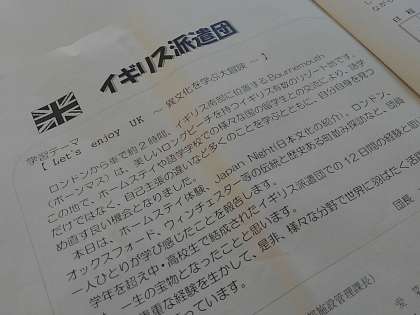 イギリス派遣団
～ 異文化を学ぶ大冒険 ～
学習テーマ
[ Let's enjoy UK
ロンドンから車で約２時間。イギリス南部に位置するBournemouth
(ボーンマス)は、美しいロングビーチを持つイギリス有数のリゾート地です。
この地で、ホームステイや語学学校での様々な国の留学生との交流により、語学
だけではなく、自己主張の違いなど多くのことを学ぶとともに、自分自身を見つ
め直す良い機会となりました。
本日は、ホームステイ体験、Japan Night(日本文化の紹介)、ロンドン、
オックスフォード、ウィンチェスター等の伝統と歴史ある町並み探訪など、団員
一人ひとりが学び感じたことを報告します。
学年を超え中・高校生で結成されたイギリス派遣団での12日間の経験と思い
一生の宝物となったことと思います。
貴重な経験を生かして、是非、様々な分野で世界に羽ばたく活
っています。
団長
施設管理課長)